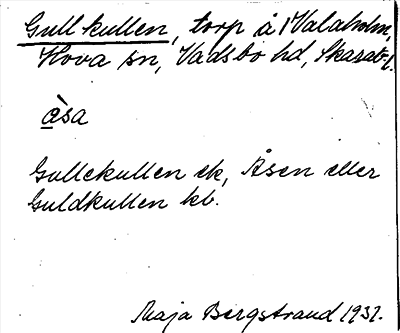 Gullkullen, torp å Valaholm,
Hova sn, Vadsbo hd, Skarab. l.
å̱̀sa
Gullekullen ek, Åsen eller
Guldkullen kb.
Maja Bergstrand 1931.